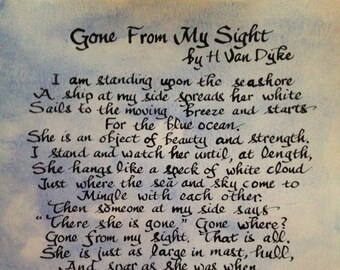 Gone From My Sight
by H Van Dyke
I am standing upon the seashore
A ship at my side spreads her white
Sails to the moving breeze and starts
For the blue ocean.
She is an object of beauty and strength.
I stand and watch her until, at length,
She hangs like a speck of white cloud
Just where the sea and sky come to
Mingle with each other.
Then someone at my side says
"There she is gone." Gone where?
Gone from my sight. That is all.
She is just as large in mast, hull,
And spar as she was when